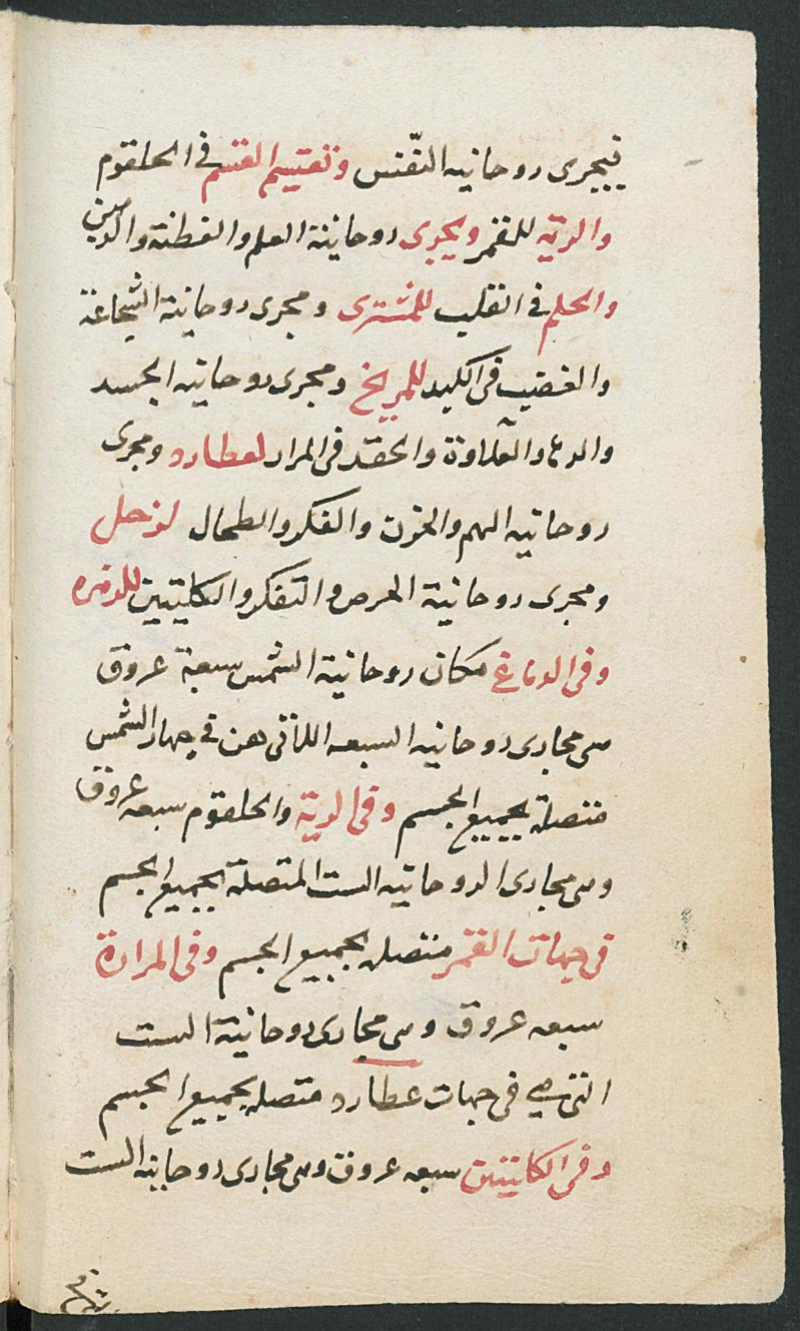 فيجرى روحانيه النفس وتقسيم القسم فى الحلقوم
والريه للقمر ويجرى روحانية العلم والفطنة والدين
والحلم فى القلب للمشترى ومجرى روحانية الشجاعة
والغضب فى الكبد للمريخ ومجرى روحانيه الجسد
والعداوة والحقد فى المرار لعطارد ومجرى
روحانيه الهم والحزن والفكر والطحال لزحل
ومجرى روحانية الحرص والتفكر والكليتين للزهره
وفى الدماغ مكان روحانية الشمس سبعة عروق
هى مجارى روحانيه السبعه اللاتى هن فى جهاز الشمس
متصلة بجميع الجسم وفى الرية والحلقوم سبعه عروق
وهى مجارى الروحانيه الست المتصلة بجميع الجسم
فى جهات القمر متصله بجميع الجسم وفى المرارة
سبعه عروق وهى مجارى روحانية الست
التى هى فى جهات عطارد متصله بجميع الجسم
وفى الكليتين سبعه عروق وهى مجارى روحانية الست